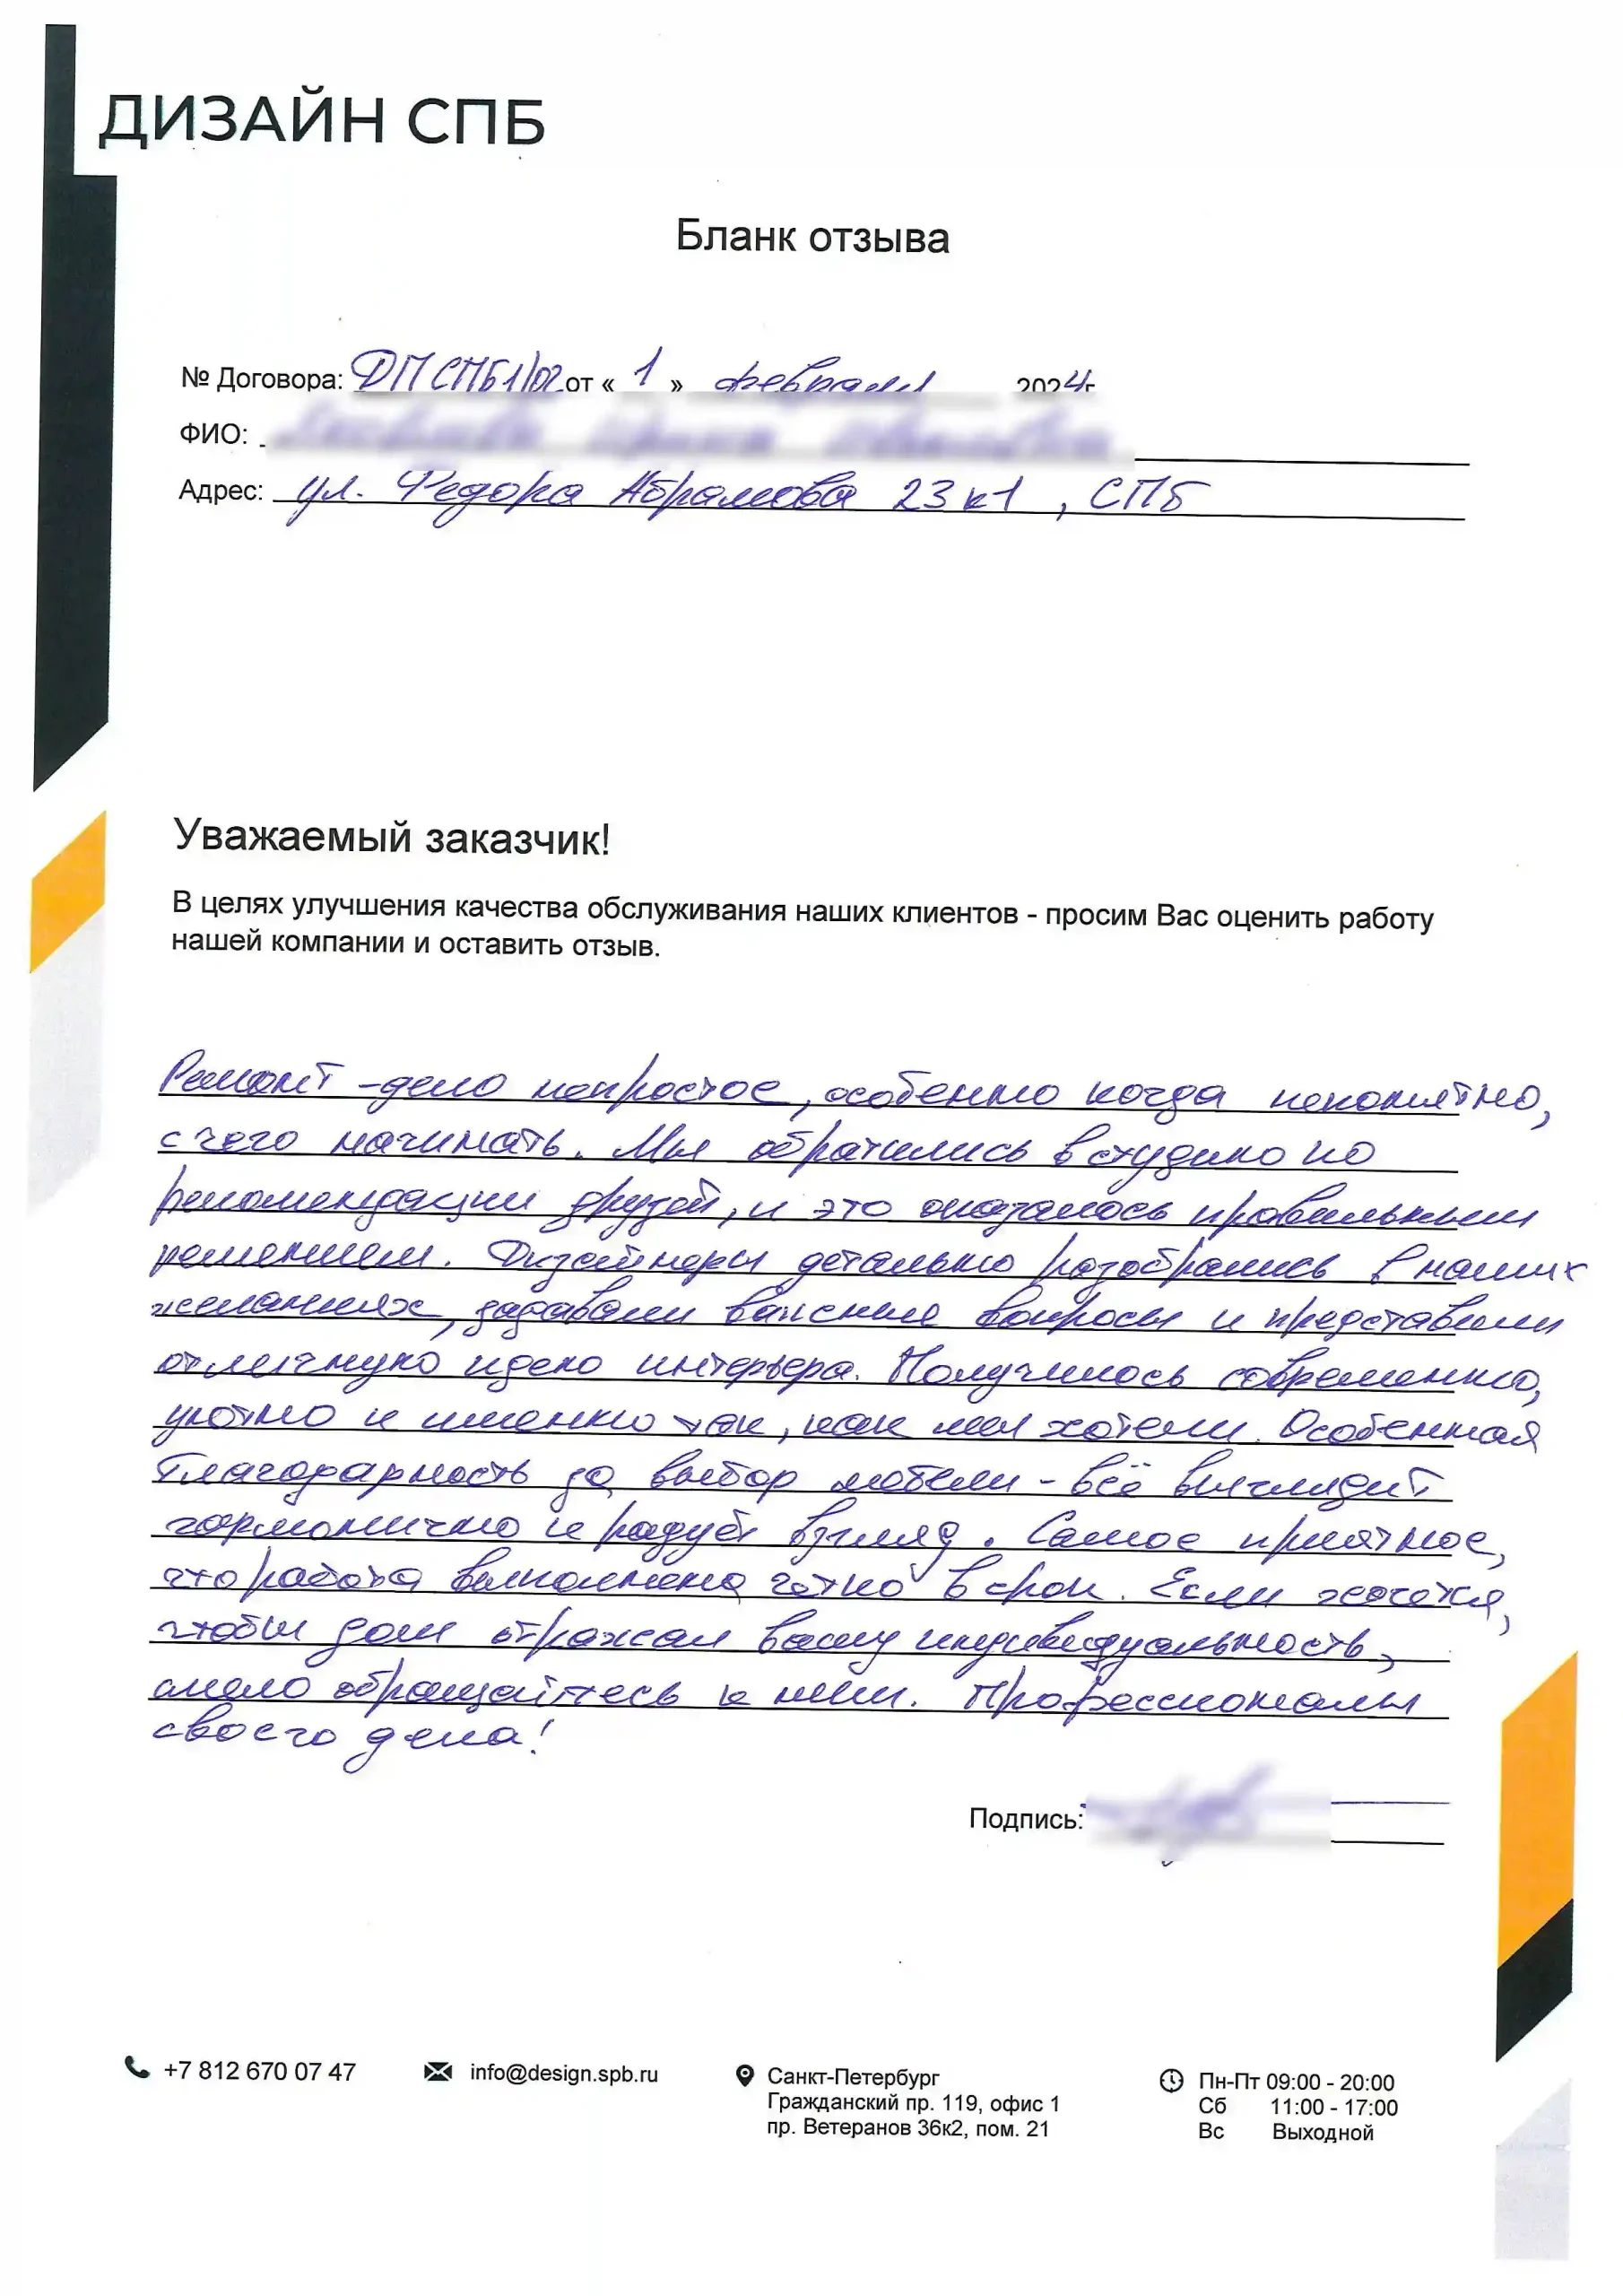 ДИЗАЙН СПБ
Бланк отзыва
№ Договора: ДПСПБ1/02 от « 1 » февраля 2024г
ФИО:
Адрес: ул. Федора Абрамова 23 к1, СПб
Уважаемый заказчик!
В целях улучшения качества обслуживания наших клиентов - просим Вас оценить работу
нашей компании и оставить отзыв.
Ремонт - дело непростое, особенно когда непонятно,
с чего начинать. Мы обратились в студию по
рекомендации друзей, и это оказалось правильным
решением. Дизайнеры детально разобрались в наших
желаниях, задавали важные вопросы и представили
отличную идею интерьера. Получилось современно,
уютно и именно так, как мы хотели. Особенная
благодарность за выбор мебели - всё выглядит
гармонично и радует взгляд. Самое приятное,
что работа выполнена чётко в срок. Если хочется,
чтобы дом отражал вашу индивидуальность,
смело обращайтесь к ним. Профессионалы
своего дела!
Подпись:
+7 812 670 07 47
info@design.spb.ru
Санкт-Петербург
Гражданский пр. 119, офис 1
пр. Ветеранов 36к2, пом. 21
Пн-Пт 09:00 - 20:00
Сб 11:00 - 17:00
Вс Выходной